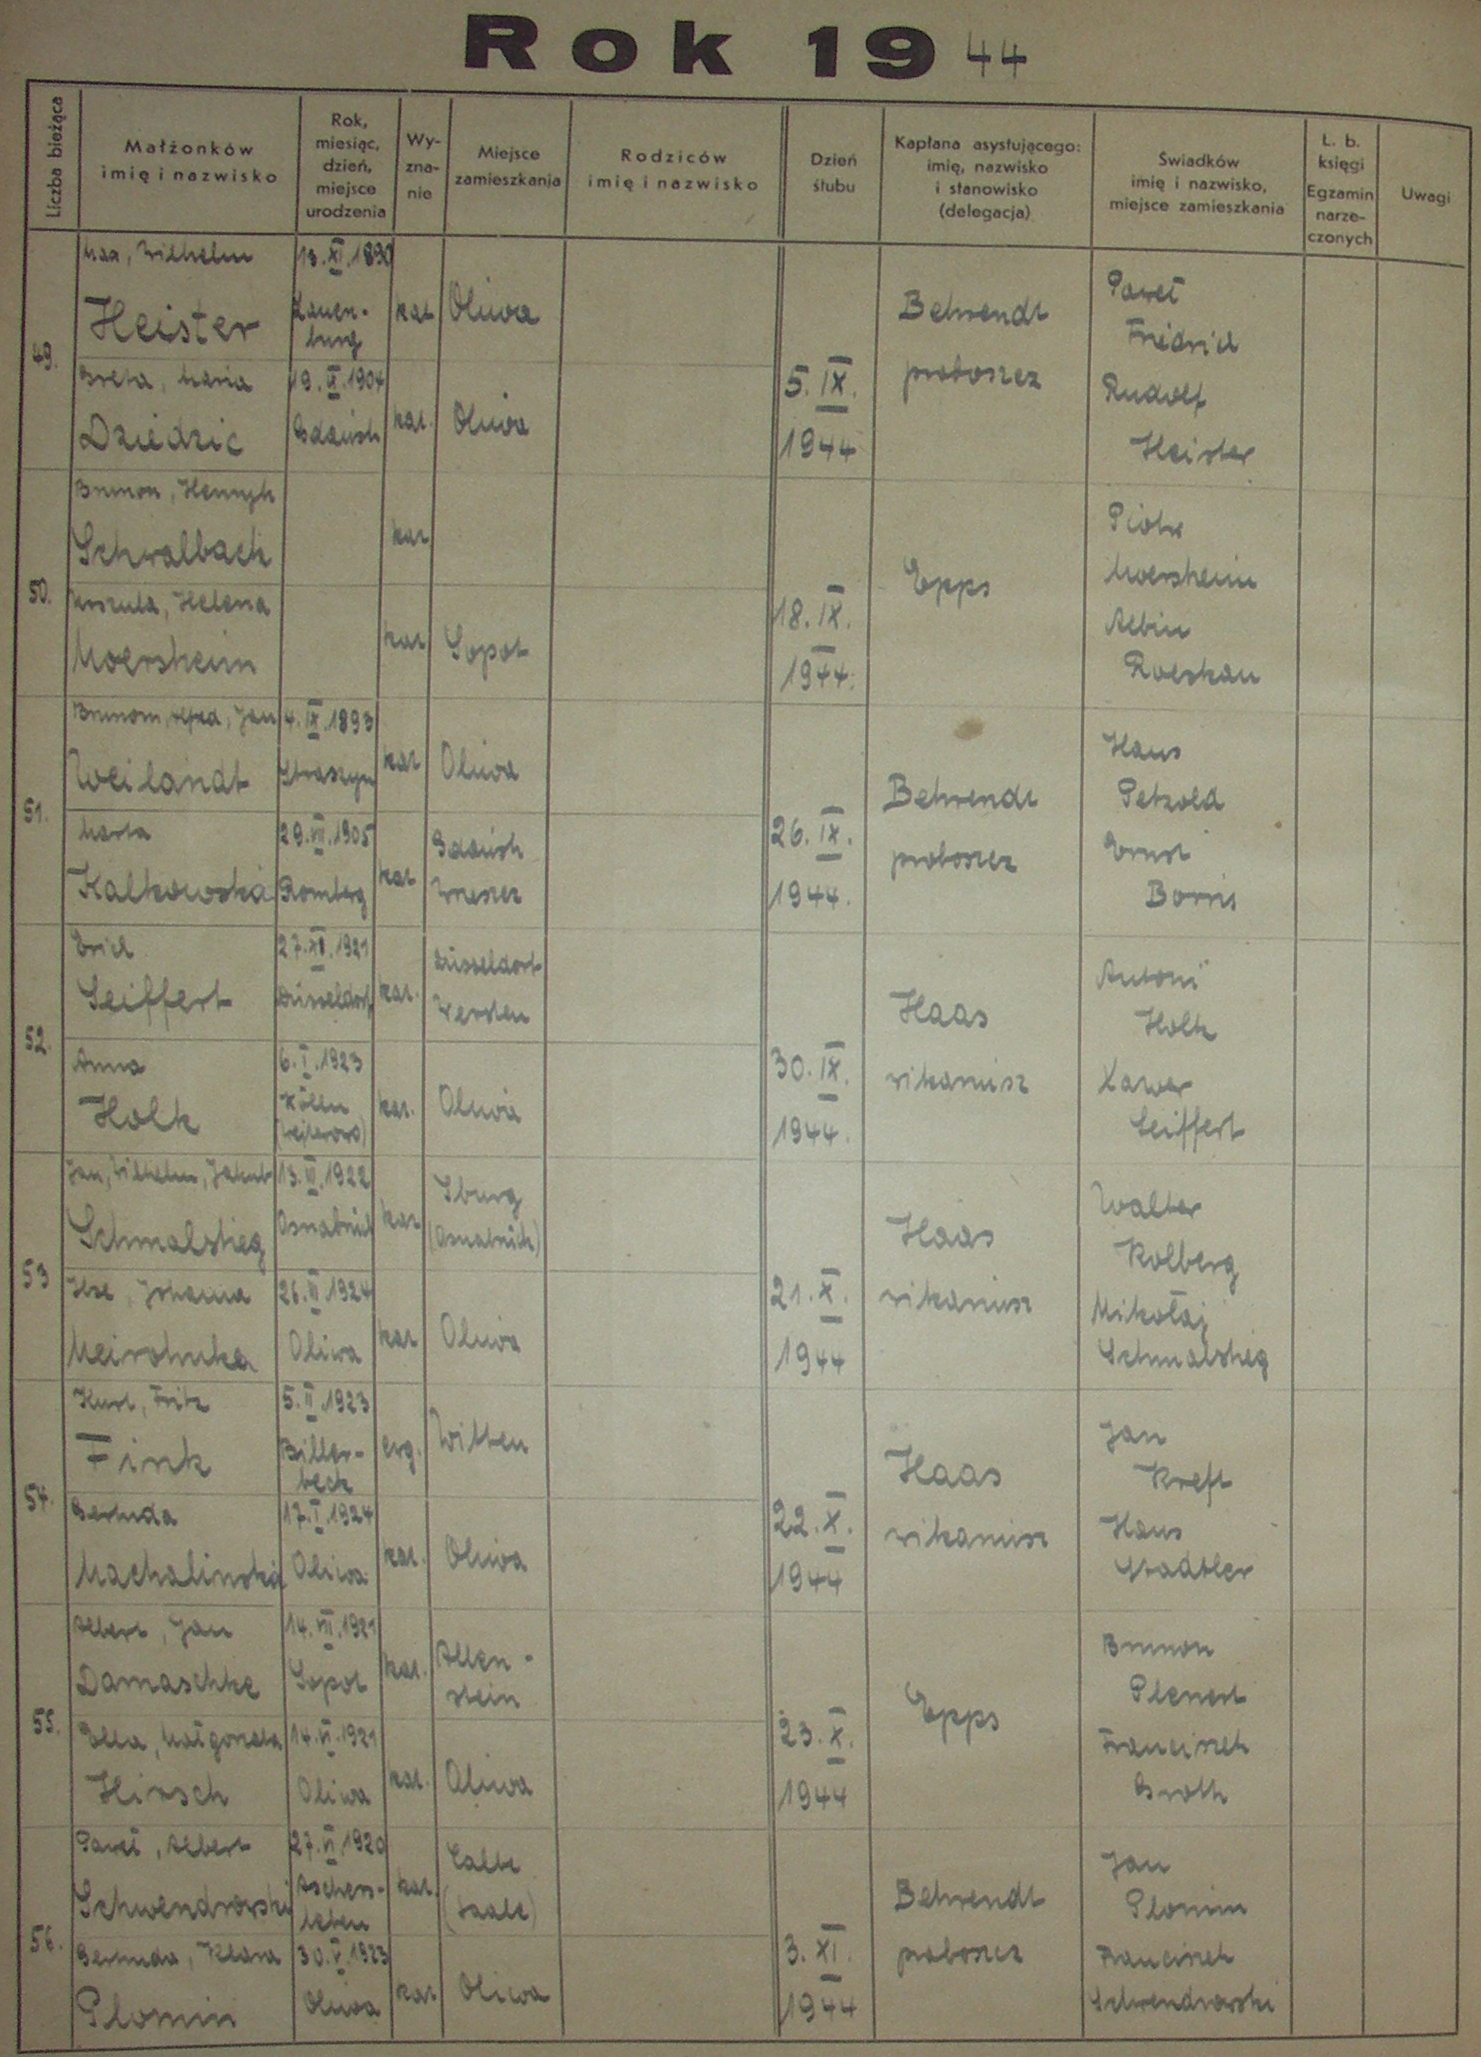 Rok 1944
Liczba bieżąca
Małżonków
imię i nazwisko
Rok,
miesiąc,
dzień,
miejsce
urodzenia
Wy-
zna-
nie
Miejsce
zamieszkania
Rodziców
imię i nazwisko
Dzień
ślubu
Kapłana asystującego:
imię, nazwisko
i stanowisko
(delegacja)
Świadków
imię i nazwisko,
miejsce zamieszkania
L. b.
księgi
Egzamin
narze-
czonych
Uwagi
49.
Max, Wilhelm
Heister
13.XI.1890
Lauen-
burg
kat
Oliwa
Greta, Maria
Dziedzic
Gdańsk
kat.
Oliwa
5. IX.
1944
Behrendt
proboszcz
Paweł
Fridrich
Rudolf
Heister
50.
Brunon, Henryk
Schwalbach
kat
Urszula, Helena
Moersheim
kat
Sopot
18. IX.
1944.
Epps
Piotr
Moersheim
Albin
Roeskau
51.
Brunon, Alfred, Jan
Weilandt
4. IX.1893
Straszyn
kat
Oliwa
Marta
Kalkowska
29.VII.1905
Romberg
kat
Gdańsk
Wrzeszcz
26. IX.
1944.
Behrendt
proboszcz
Hans
Petzold
Ernst
Borris
52.
Erich
Seiffert
27.XII.1921
Düsseldorf
kat.
Düsseldorf
Wersten
Anna
Holk
6. I.1923
Köllen
(Wejherowo)
kat.
Oliwa
30. IX.
1944.
Haas
wikariusz
Antoni
Holk
Xawer
Seiffert
53
Jan, Wilhelm, Jakub
Schmalstieg
13.III.1922
Osnabrück
kat
Iburg
(Osnabrück)
Ilse, Johanna
Meirotnka
26.III.1924
Oliwa
kat
Oliwa
21. X.
1944
Haas
wikariusz
Walter
Kolberg
Mikołaj
Schmalstieg
54.
Kurt, Fritz
Fink
5.II.1923
Biller-
beck
ewg.
Witten
Gertruda
Machalinska
17.I.1924
Oliwa
kat.
Oliwa
22. X.
1944
Haas
wikariusz
Jan
Kreft
Hans
Stadtler
55.
Albert, Jan
Damaschke
14.VII.1921
Sopot
kat.
Allen-
stein
Ella, Małgorzata
Hirsch
14.VI.1921
Oliwa
kat.
Oliwa
23. X.
1944
Epps
Brunon
Plenert
Franciszek
Groth
56.
Paweł, Albert
Schwendrowski
27.VI.1920
Aschers-
leben
kat.
Calbe
(Saale)
Gertruda, Klara
Plomin
30.V.1923
Oliwa
kat
Oliwa
3. XI.
1944
Behrendt
proboszcz
Jan
Plomin
Franciszek
Schwendrowski